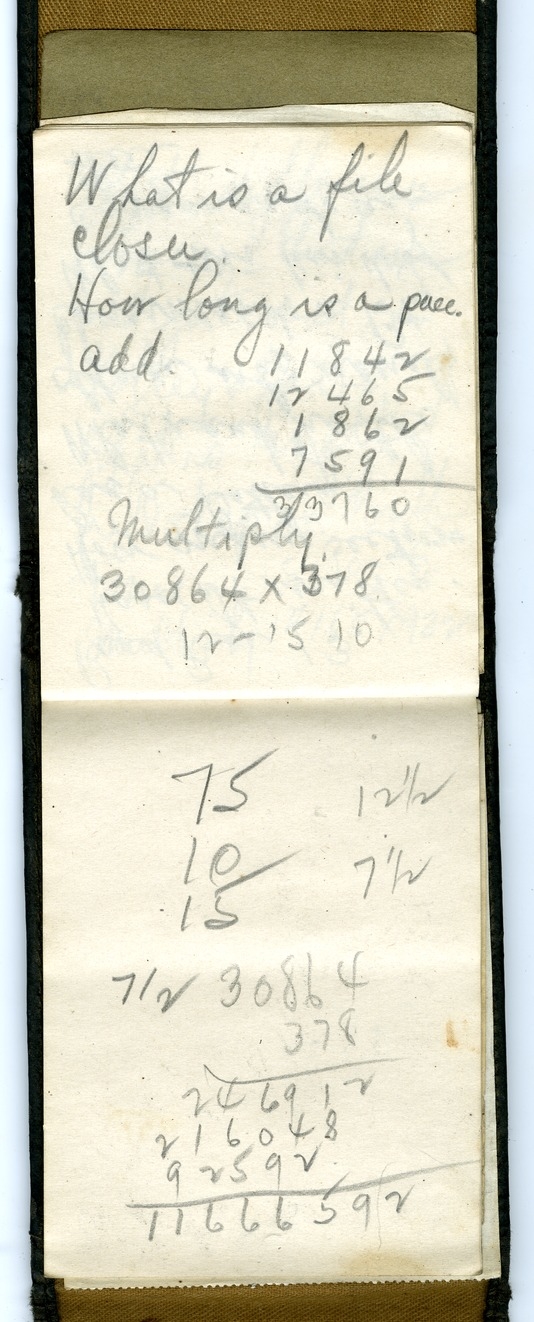 What is a file
closer.
How long is a pace.
add. 11842
12465
1862
7591
33760
Multiply
30864 x 378
12-15 10
75 12 1/2
10 7 1/2
15
7 1/2 30864
378
246912
216048
92592
11666592